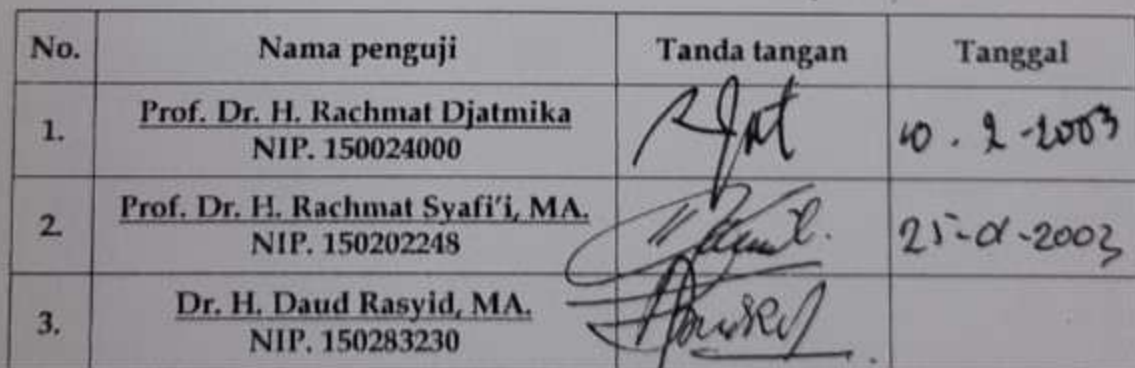 No. Nama penguji Tanda tangan Tanggal
1. Prof. Dr. H. Rachmat Djatmika
NIP. 150024000
10 . 2 -2003
2. Prof. Dr. H. Rachmat Syafi'i, MA.
NIP. 150202248
2003
3. Dr. H. Daud Rasyid, MA.
NIP. 150283230